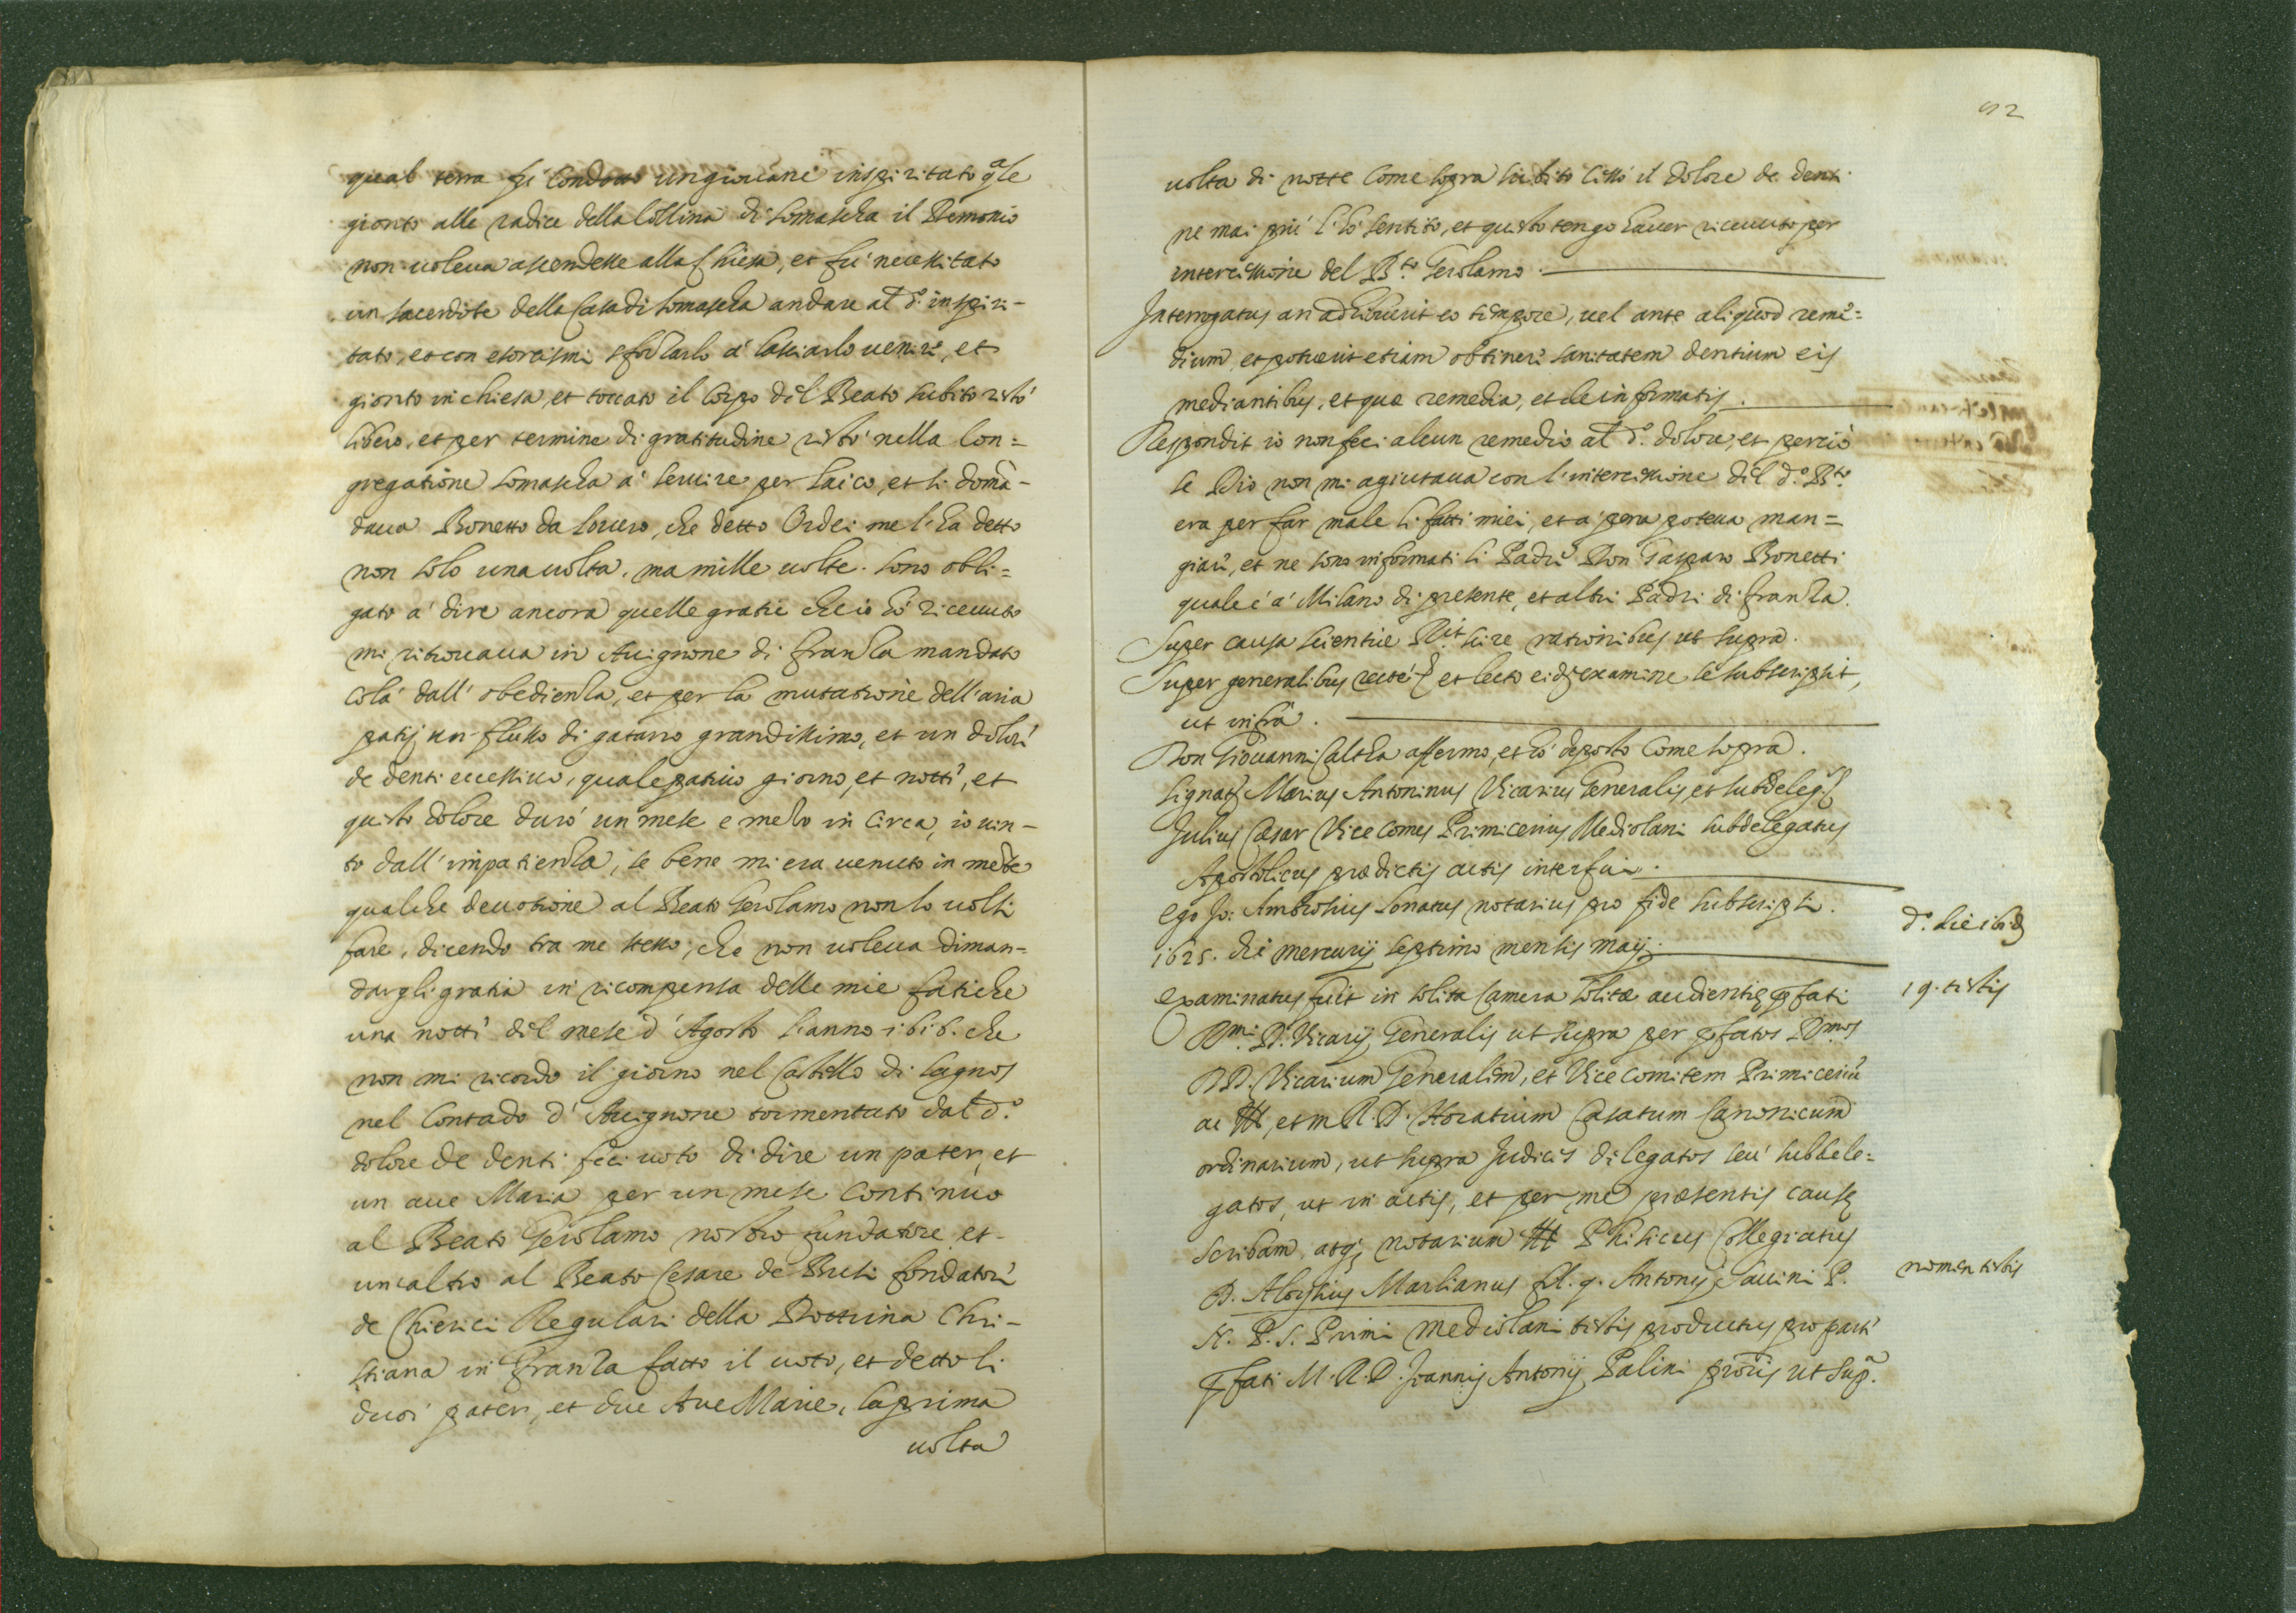 qual terra fù condotto un giovane inspiritato qle
gionto alle radice della Collina di Somascha il Demonio
non voleva ascendesse alla Chiesa, et fù necessitato
un sacerdote della Casa di Somascha andare al d.o inspiri-
tato, et con esorcismi sforzarlo à lasciarlo venire, et
gionto in chiesa, et toccato il corpo del Beato subito restò
libero, et per termine di gratitudine restò nella Con=
gregatione Somascha à servire per laico, et si doma-
dava Bonetto da Lovero, che detto Ordei me l'ha detto
non solo una volta, ma mille volte. sono obli=
gato à dire ancora quelle gratie che io hò ricevuto
mi ritrovava in Avignone di franza mandato
colà dall'obedienza, et per la mutatione dell'aria
patij un flusso di gatarro grandissimo, et un dolore
de denti eccessivo, quale pativo giorno, et notte, et
questo dolore durò un mese e mezo in circa, io vin-
to dall'impatienza, se bene mi era venuto in mente
qualche devotione al Beato Gerolamo non lo volsi
fare, dicendo tra me stesso, che non voleva diman=
dargli gratia in ricompensa delle mie fatiche
una notte del mese d'Agosto l'anno 1616. che
non mi ricordo il giorno nel Castello di Cagnos
nel Contado d'Avignone tormentato dal d.o
dolore de denti feci voto di dire un pater, et
un ave Maria per un mese continuo
al Beato Gerolamo nostro fundatore et-
un'altro al Beato Cesare de Busi fondatore
de Chierici Regulari della Dottrina Chri-
stiana in Franza fatto il voto, et detto li
duoi pater, et due Ave Marie, la prima
volta
92
volta di notte come sopra subito cessò il dolore de denti
ne mai più l'hò sentito, et questo tengo haver ricevuto per
intercessione del B.to Gerolamo.
Interrogatus an adhibuerit eo tempore, vel ante aliquod reme=
dium, et potuerit etiam obtinere sanitatem dentium eis
mediantibus, et quæ remedia, et de informatis.
Respondit io non feci alcun remedio al d.o dolore, et perciò
se Dio non mi agiutava con l'intercessione del d.o B.to
era per far male li fatti miei, et à pena poteva man=
giare, et ne sono informati li Padri Don Gasparo Bonetti
quale è à Milano di presente, et altri Padri di franza.
Super causa scientiæ R.it scire rationibus ut supra.
Super generalibus recte et lecto eid. examine se subscripsit,
ut infra.
Don Giovanni Calcha affermo, et hò deposto come sopra.
signat. Marius Antoninus Vicarius Generalis, et subdeleg.
Julius Cæsar Vice comes Primicerius Mediolani subdelegatus
Apostolicus prædictis actis interfui.
Ego Jo: Ambrosius Lonatus notarius pro fide subscripsi.
1625. die mercurij septimo mensis maij.
d.o die ibid.
Examinatus fuit in solita Camera solitæ audientiæ pfati
19. testis
R.mi D. Vicarij Generalis ut supra per pfatos R.mos
DD. Vicarium Generalem, et Vice comitem Primiceriu
ac Ill, et m. R. D. Horatium Casatum Canonicum
ordinarium, ut supra Judices delegatos seù subdele=
gatos, ut in actis, et per me præsentis causæ
scribam, atq; notarium Ill Phisicus Collegiatus
D. Aloysius Marlianus fil. q. Antonij Saccini P.
nomen testis
N. P. S. Primi Mediolani testis productus pro parte
pfati M. R. D. Joannis Antonij Palini proris ut sup.